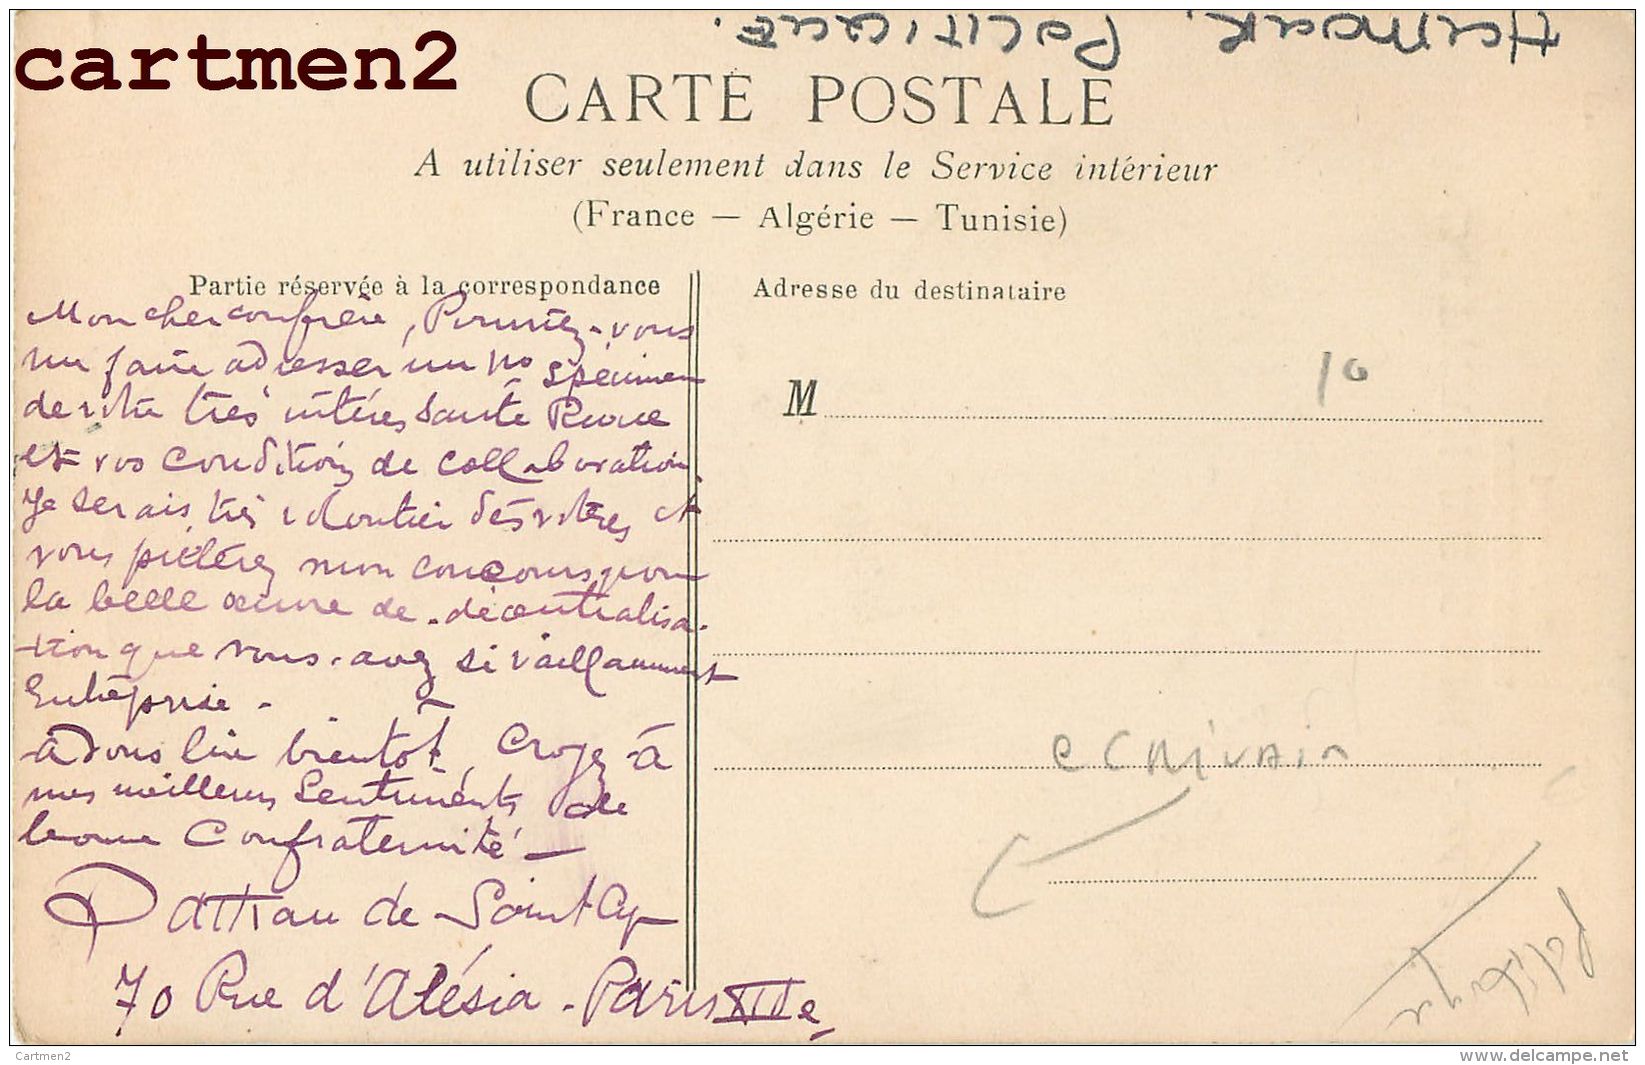 cartmen2
Humour. Politique.
CARTE POSTALE
A utiliser seulement dans le Service intérieur
(France — Algérie — Tunisie)
Partie réservée à la correspondance
Adresse du destinataire
Mon cher confrère, Pourriez-vous
me faire adresser un no spécimen
de votre très intéressante Revue
et vos conditions de collaboration
Je serais très volontiers des vôtres et
vous prêterez mon concours pour
la belle œuvre de décentralisa-
tion que vous avez si vaillamment
Entreprise -
à vous lire bientôt, Croyez à
mes meilleurs sentiments de
bonne Confraternité —
Pattiau de Saint Cyr
70 Rue d'Alésia - Paris XIVe
M
10
ecrivain
politique
Cartmen2
www.delcampe.net